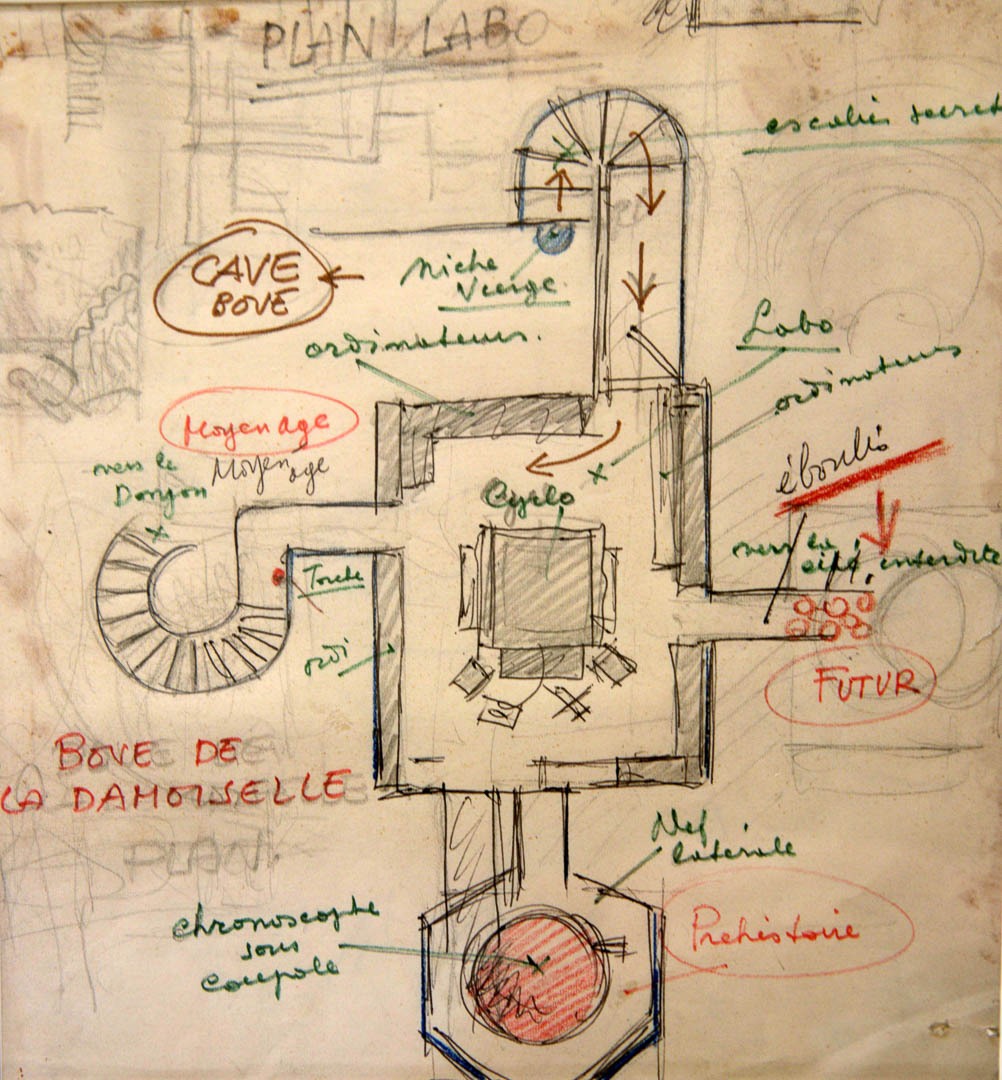 PLAN LABO
escalier secret
CAVE
BOVE
Niche
Vierge
ordinateurs.
Labo
ordinateurs
Moyen age
Moyen age
vers le
Donjon
Cyclo
éboulis
vers la
cité interdite
Torche
ordi
FUTUR
BOVE DE
LA DAMOISELLE
PLAN
Nef
latérale
chronoscaphe
sous
coupole
Préhistoire